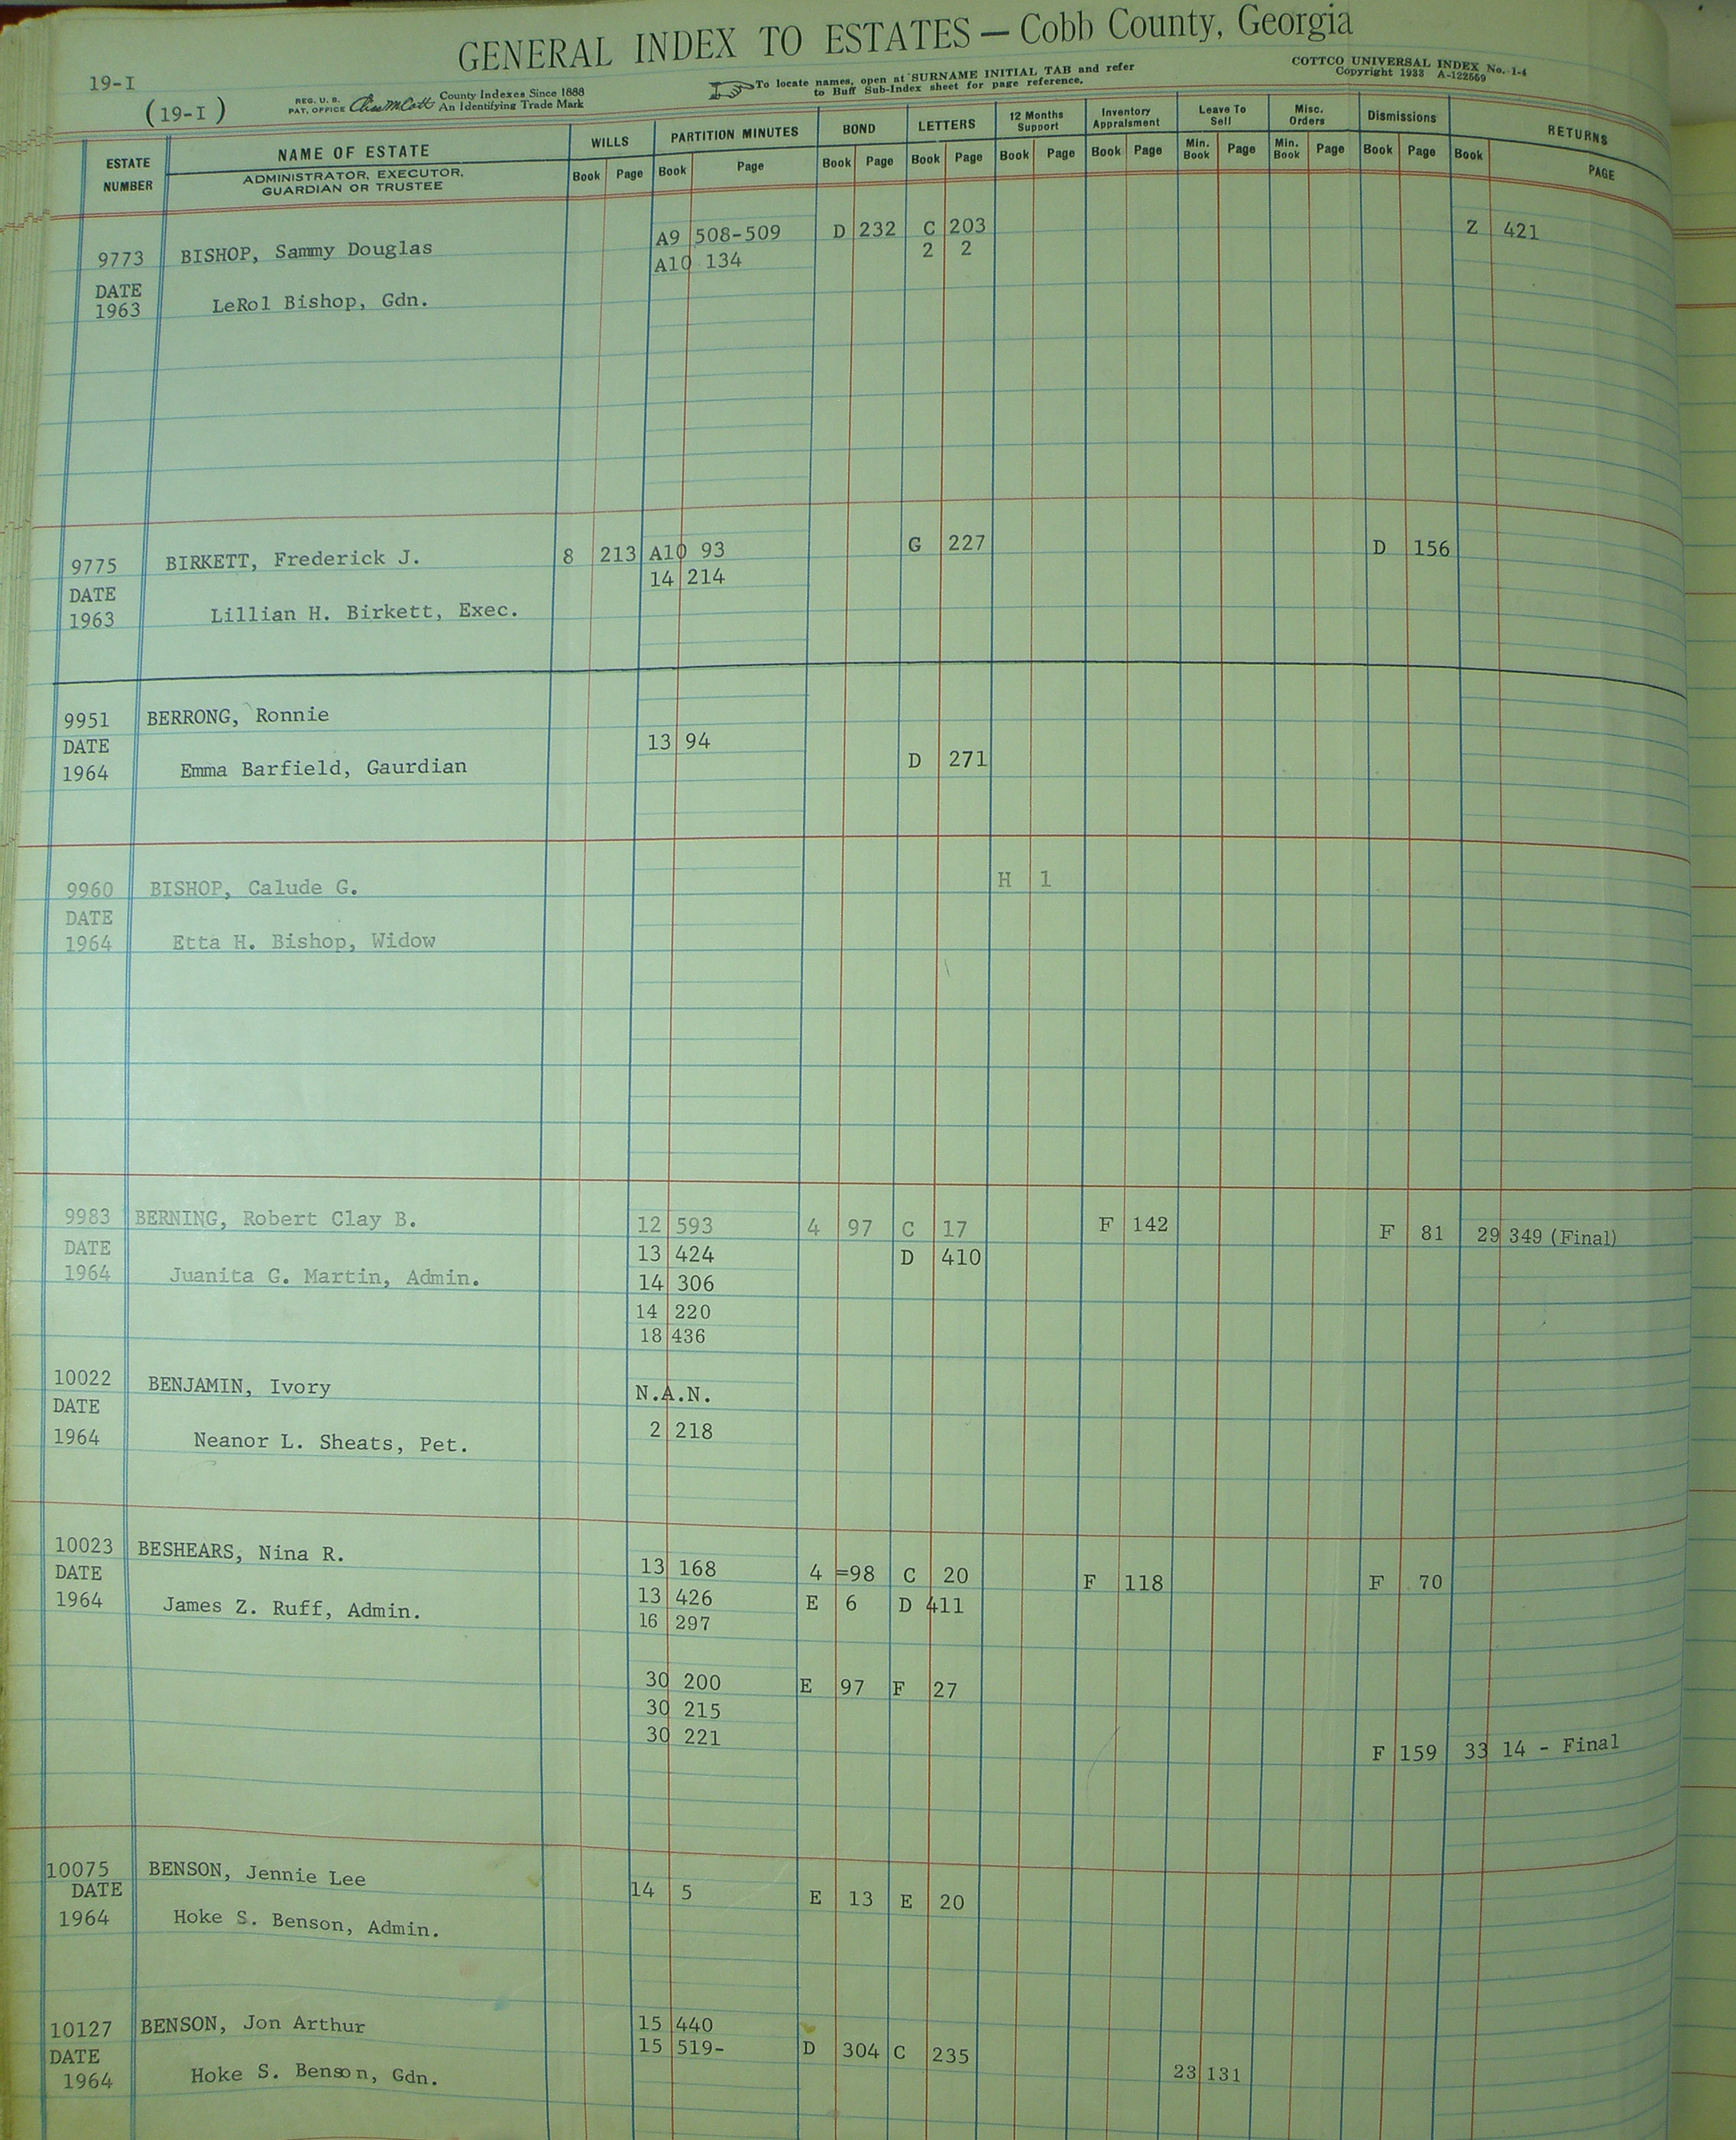 GENERAL INDEX TO ESTATES — Cobb County, Georgia
19-I
(19-I)
REG. U. S. PAT. OFFICE
County Indexes Since 1888
An Identifying Trade Mark
To locate names, open at SURNAME INITIAL TAB and refer
to Buff Sub-Index sheet for page reference.
COTTCO UNIVERSAL INDEX No. 1-4
Copyright 1933 A-122569
ESTATE NUMBER
NAME OF ESTATE
ADMINISTRATOR, EXECUTOR, GUARDIAN OR TRUSTEE
WILLS PARTITION MINUTES BOND LETTERS 12 Months Support Inventory Appraisment Leave To Sell Misc. Orders Dismissions RETURNS
Book Page Book Page Book Page Book Page Book Page Book Page Min. Book Page Min. Book Page Book Page Book PAGE
9773 BISHOP, Sammy Douglas A9 508-509 D 232 C 203 Z 421
A10 134 2 2
DATE
1963 LeRol Bishop, Gdn.
9775 BIRKETT, Frederick J. 8 213 A10 93 G 227 D 156
DATE 14 214
1963 Lillian H. Birkett, Exec.
9951 BERRONG, Ronnie
DATE 13 94
1964 Emma Barfield, Gaurdian D 271
9960 BISHOP, Calude G. H 1
DATE
1964 Etta H. Bishop, Widow
9983 BERNING, Robert Clay B. 12 593 4 97 C 17 F 142 F 81 29 349 (Final)
DATE 13 424 D 410
1964 Juanita G. Martin, Admin. 14 306
14 220
18 436
10022 BENJAMIN, Ivory N.A.N.
DATE
1964 Neanor L. Sheats, Pet. 2 218
10023 BESHEARS, Nina R. 13 168 4 =98 C 20 F 118 F 70
DATE 13 426 E 6 D 411
1964 James Z. Ruff, Admin. 16 297
30 200 E 97 F 27
30 215
30 221 F 159 33 14 - Final
10075 BENSON, Jennie Lee 14 5 E 13 E 20
DATE
1964 Hoke S. Benson, Admin.
10127 BENSON, Jon Arthur 15 440
DATE 15 519- D 304 C 235
1964 Hoke S. Benson, Gdn. 23 131